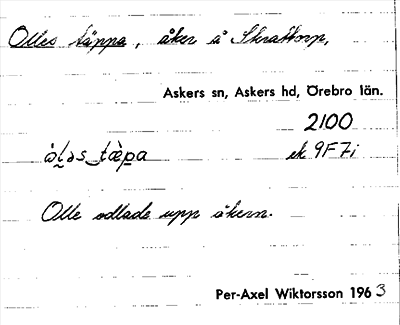 Olles täppa, åker å Skrattorp,
Askers sn, Askers hd, Örebro län.
2100
òḷəs‿tæ̀pa ek 9F7i
Olle odlade upp åkern.
Per-Axel Wiktorsson 1963